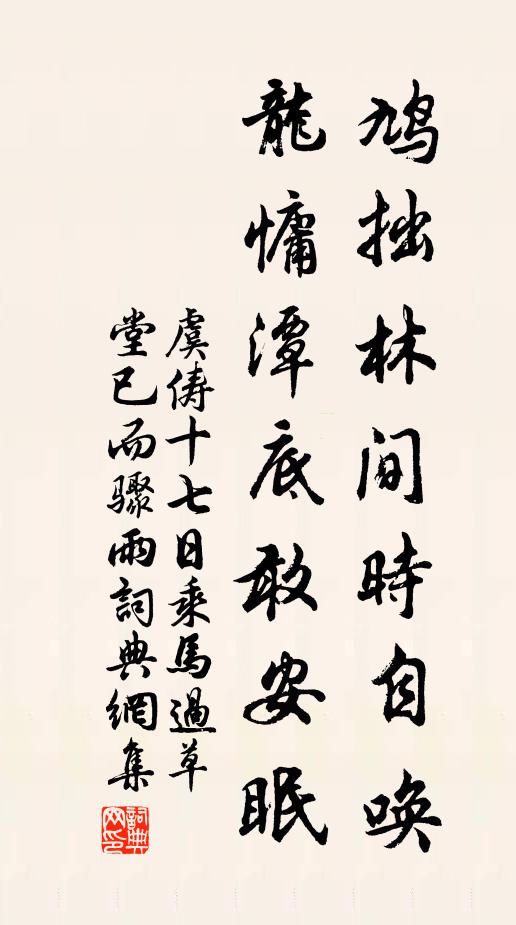 鳩拙林間時自喚
龍慵潭底敢安眠
虞儔十七日乘馬過草
堂已而驟雨詞典網集
詞典
网印